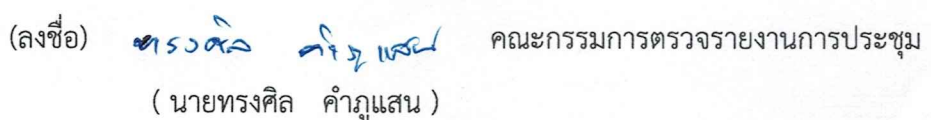 (ลงชื่อ) ทรงศิล คำภูแสน คณะกรรมการตรวจรายงานการประชุม
( นายทรงศิล คำภูแสน )